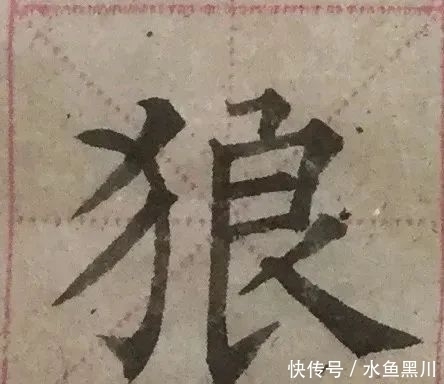 狼
快传号／水鱼黑川